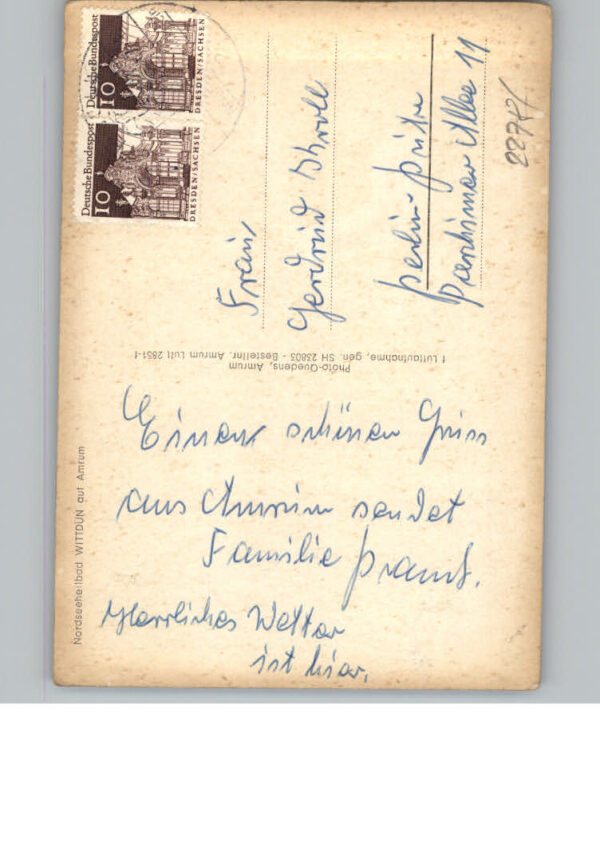 Einen schönen Gruss
aus Amrum sendet
Familie
Herrliches Wetter
ist hier.
Frau
Gertrud
Berlin-Britz
Parchimer Allee 11
Deutsche Bundespost
10
DRESDEN/SACHSEN
Deutsche Bundespost
10
DRESDEN/SACHSEN
Nordseeheilbad WITTDÜN auf Amrum
Photo-Quedens, Amrum
Luftaufnahme, gen. SH 23803 - Bestellnr. Amrum Luft 2851-f